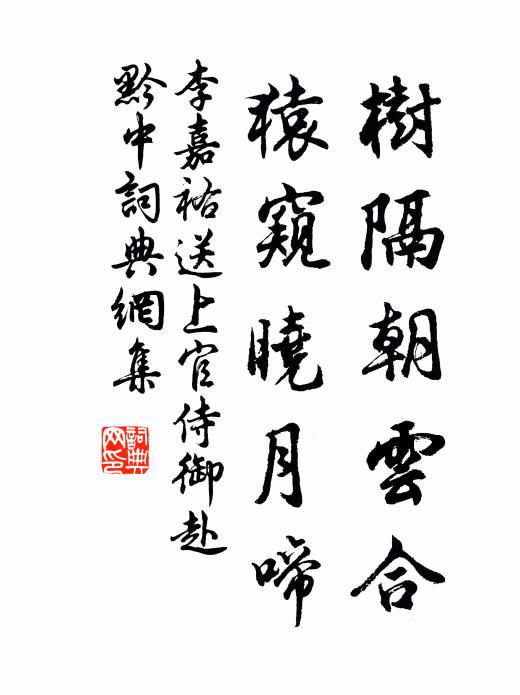 樹隔朝雲合
猿窺曉月啼
李嘉祐送上官侍御赴
黔中詞典網集
詞典
网印